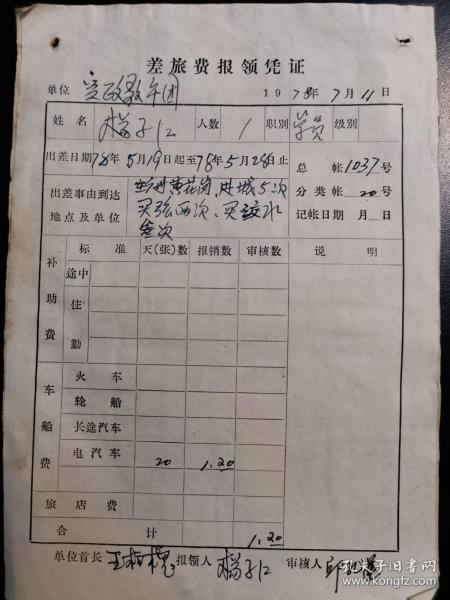 差旅费报领凭证
单位 1978年7月11日
姓名 杨子仁 人数 1 职别 学员 级别
出差日期 78年5月19日起至78年5月28日止 总帐1037号
出差事由到达地点及单位 黄花岗,进城5次 分类帐20号
买 两次、买胶水 记帐日期 月 日
叁次
标准 天(张)数 报销数 审核数 说明
补助费
途中
住
勤
车船费
火车
轮船
长途汽车
电汽车 20 1.20
旅店费
合计 1.20
单位首长 报领人 杨子仁 审核人
孔夫子旧书网
kongfz.com